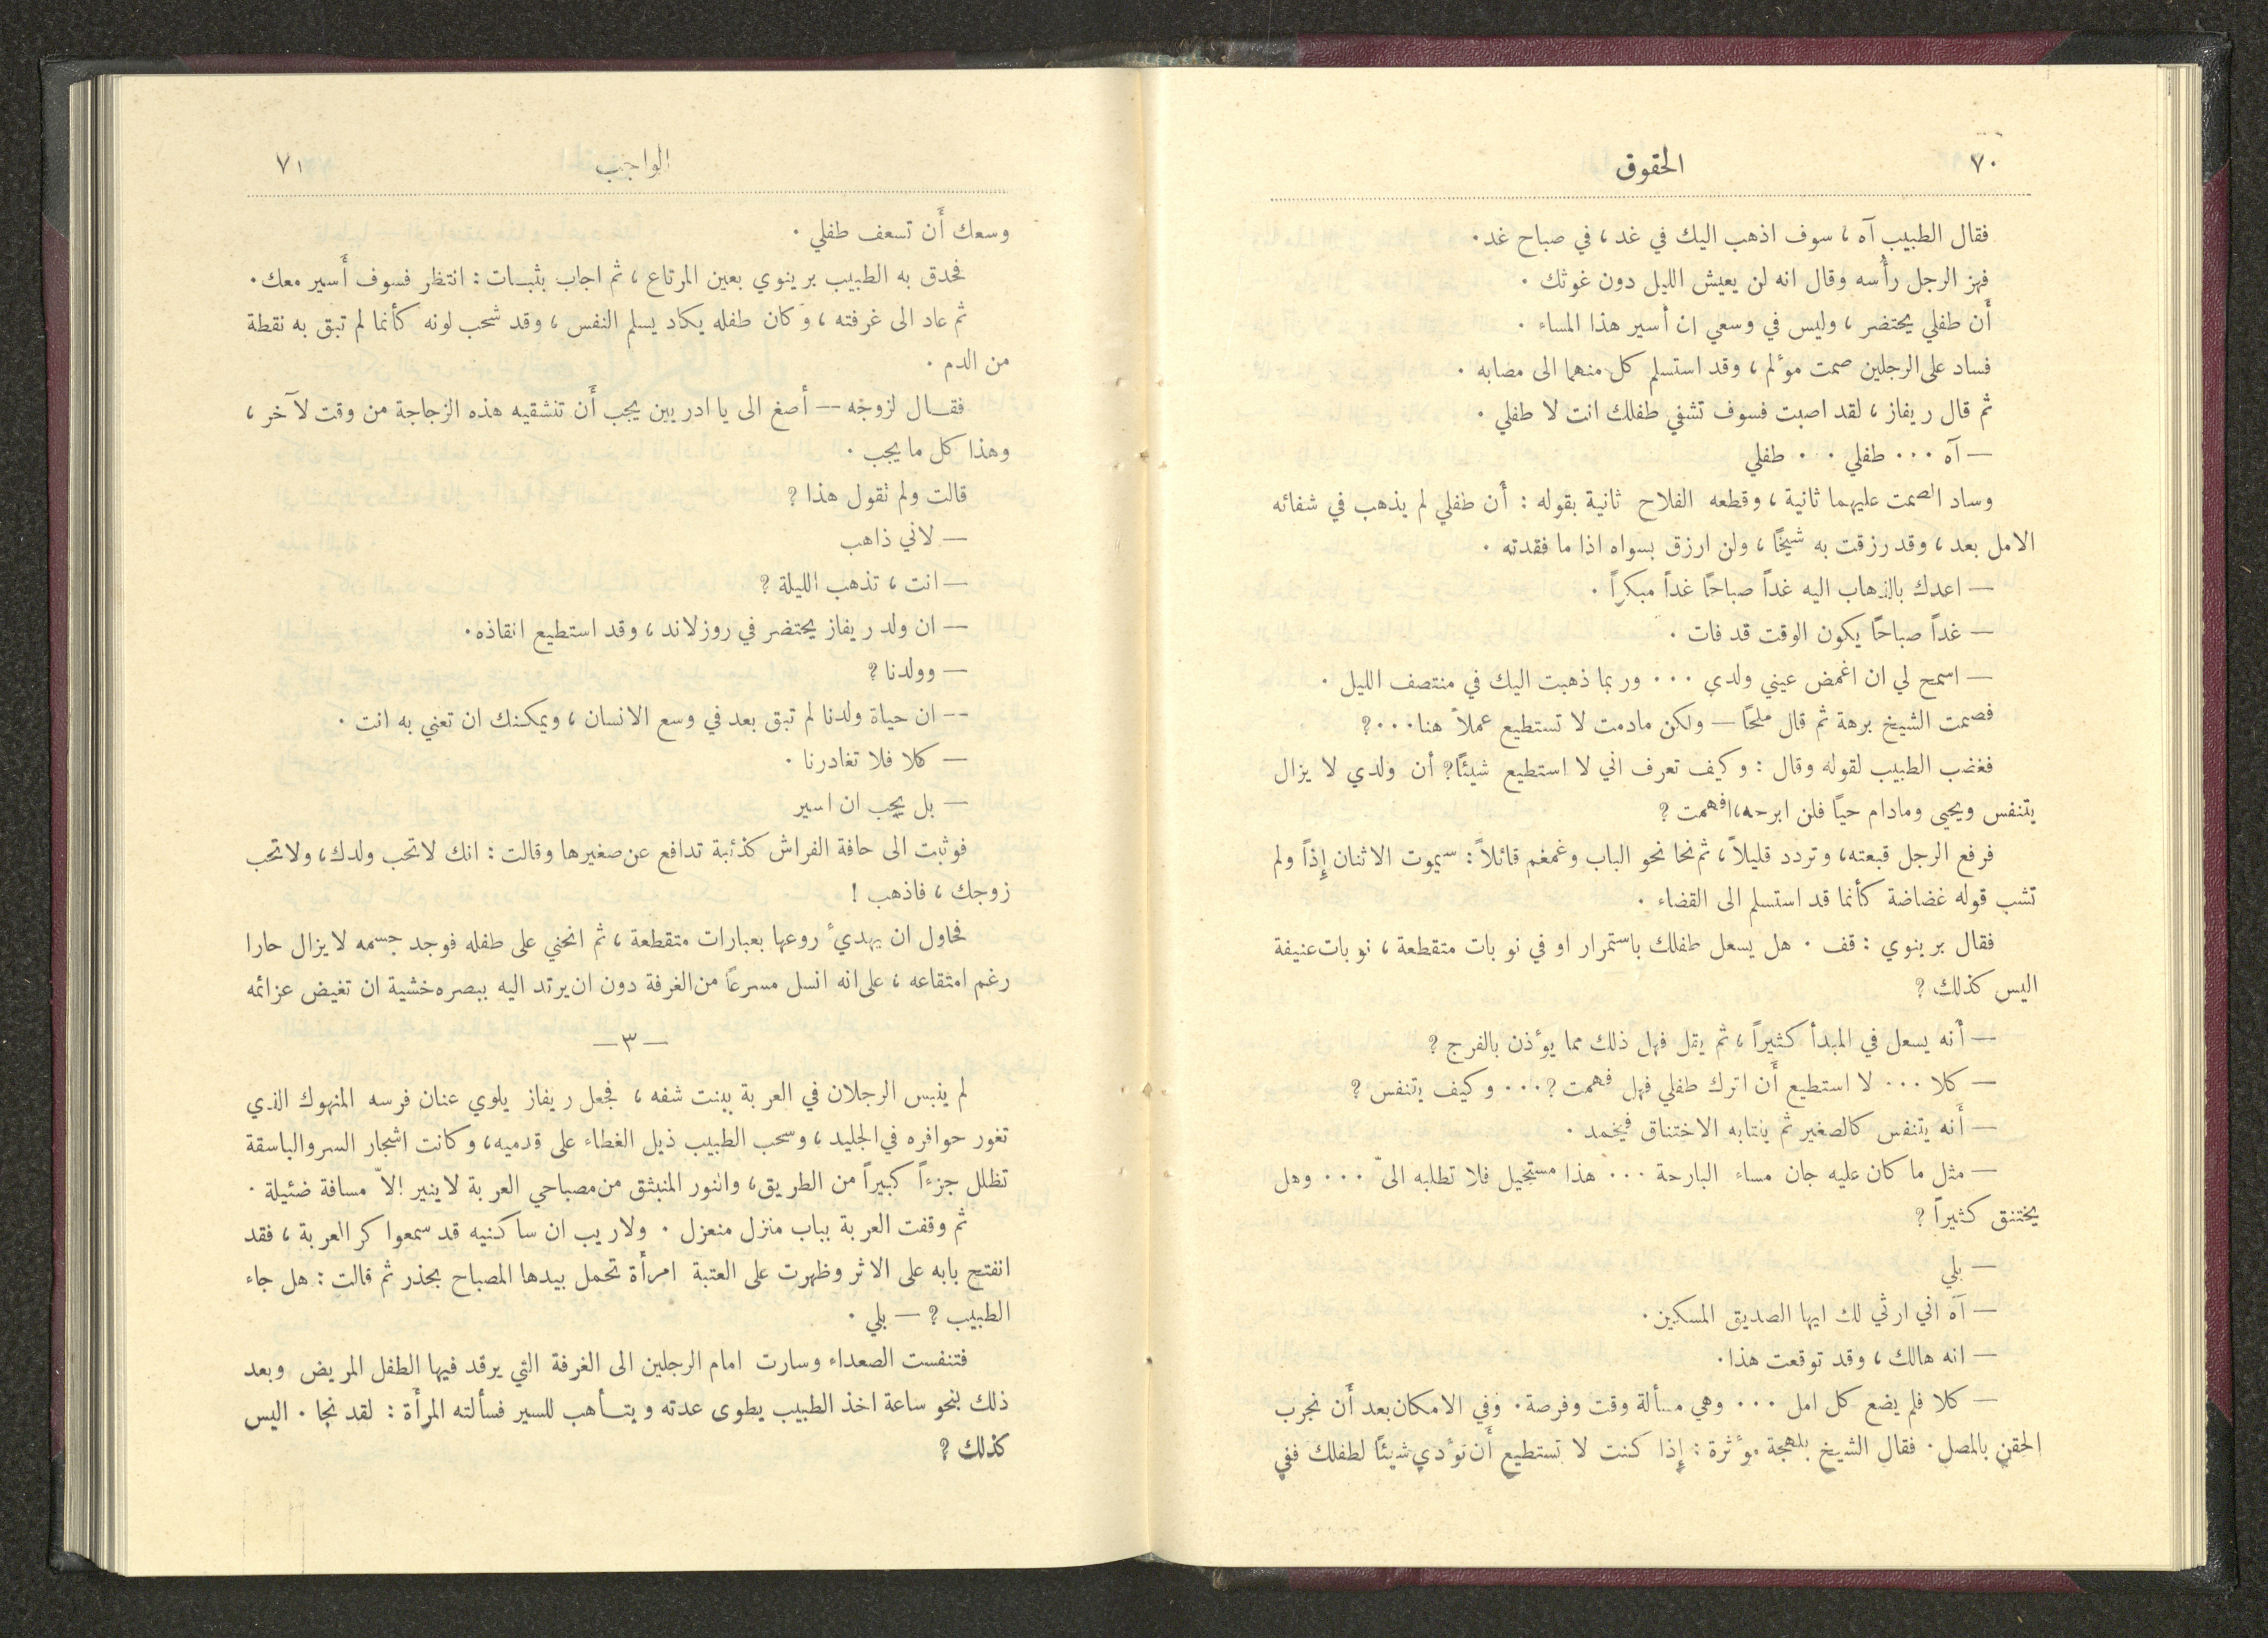 ٧٠
الحقوق
فقال الطبيب آه ، سوف اذهب اليك في غد ، في صباح غد .
فهز الرجل رأسه وقال انه لن يعيش الليل دون غوثك .
أن طفلي يحتضر ، وليس في وسعي ان أسير هذا المساء .
فساد على الرجلين صمت مؤلم ، وقد استسلم كل منهما الى مصابه .
ثم قال ريفاز ، لقد اصبت فسوف تشفي طفلك انت لا طفلي .
— آه ... طفلي . . طفلي
وساد الصمت عليهما ثانية ، وقطعه الفلاح ثانية بقوله : أن طفلي لم يذهب في شفائه
الامل بعد ، وقد رزقت به شيخًا ، ولن ارزق بسواه اذا ما فقدته .
— اعدك بالذهاب اليه غداً صباحًا غداً مبكراً .
— غداً صباحًا يكون الوقت قد فات .
— اسمح لي ان اغمض عيني ولدي ... وربما ذهبت اليك في منتصف الليل .
فصمت الشيخ برهة ثم قال ملحًا — ولكن مادمت لا تستطيع عملاً هنا...؟
فغضب الطبيب لقوله وقال : وكيف تعرف اني لا استطيع شيئًا؟ أن ولدي لا يزال
يتنفس ويحيى ومادام حيًا فلن ابرحه، افهمت ؟
فرفع الرجل قبعته، وتردد قليلاً ، ثم نحا نحو الباب وغمغم قائلاً : سيموت الاثنان إذاً ولم
تشب قوله غضاضة كأنما قد استسلم الى القضاء .
فقال برينوي : قف . هل يسعل طفلك باستمرار او في نوبات متقطعة ، نوبات عنيفة
اليس كذلك ؟
— أنه يسعل في المبدأ كثيراً ، ثم يقل فهل ذلك مما يؤذن بالفرج ؟
— كلا ... لا استطيع أن اترك طفلي فهل فهمت ؟... وكيف يتنفس ؟
— أنه يتنفس كالصغير ثم ينتابه الاختناق فيخمد .
— مثل ما كان عليه جان مساء البارحة ... هذا مستحيل فلا تطلبه الىّ ... وهل
يختنق كثيراً ؟
— بلي
— آه اني ارثي لك ايها الصديق المسكين .
— انه هالك ، وقد توقعت هذا .
— كلا فلم يضع كل امل ... وهي مسألة وقت وفرصة . وفي الامكان بعد أن نجرب
الحقن بالمصل . فقال الشيخ بلهجة مؤثرة : إذا كنت لا تستطيع أن تؤدي شيئًا لطفلك ففي
الواجب
٧١
وسعك أن تسعف طفلي .
فحدق به الطبيب برينوي بعين المرتاع ، ثم اجاب بثبات : انتظر فسوف أسير معك .
ثم عاد الى غرفته ، وكان طفله يكاد يسلم النفس ، وقد شحب لونه كأنما لم تبق به نقطة
من الدم .
فقال لزوجه — أصغ الى يا ادريين يجب أن تنشقيه هذه الزجاجة من وقت لآخر ،
وهذا كل ما يجب .
قالت ولم تقول هذا ؟
— لاني ذاهب
— انت ، تذهب الليلة ؟
— ان ولد ريفاز يحتضر في روزلاند ، وقد استطيع انقاذه .
— وولدنا ؟
-- ان حياة ولدنا لم تبق بعد في وسع الانسان ، ويمكنك ان تعني به انت .
— كلا فلا تغادرنا .
— بل يجب ان اسير
فوثبت الى حافة الفراش كذئبة تدافع عن صغيرها وقالت : انك لا تحب ولدك ، ولا تحب
زوجك ، فاذهب !
فحاول ان يهديء روعها بعبارات متقطعة ، ثم انحني على طفله فوجد جسمه لا يزال حارا
رغم امتقاعه ، على انه انسل مسرعًا من الغرفة دون ان يرتد اليه ببصره خشية ان تغيض عزائمه
— ٣ —
لم ينبس الرجلان في العربة ببنت شفه ، فجعل ريفاز يلوي عنان فرسه المنهوك الذي
تغور حوافره في الجليد ، وسحب الطبيب ذيل الغطاء على قدميه ، وكانت اشجار السرو الباسقة
تظلل جزءاً كبيراً من الطريق ، والنور المنبثق من مصباحي العربة لا ينير إلاّ مسافة ضئيلة .
ثم وقفت العربة بباب منزل منعزل . ولا ريب ان ساكنيه قد سمعوا كر العربة ، فقد
انفتح بابه على الاثر وظهرت على العتبة امرأة تحمل بيدها المصباح بحذر ثم قالت : هل جاء
الطبيب ؟ — بلي .
فتنفست الصعداء وسارت امام الرجلين الى الغرفة التي يرقد فيها الطفل المريض وبعد
ذلك بنحو ساعة اخذ الطبيب يطوى عدته ويتأهب للسير فسألته المرأة : لقد نجا . اليس
كذلك ؟